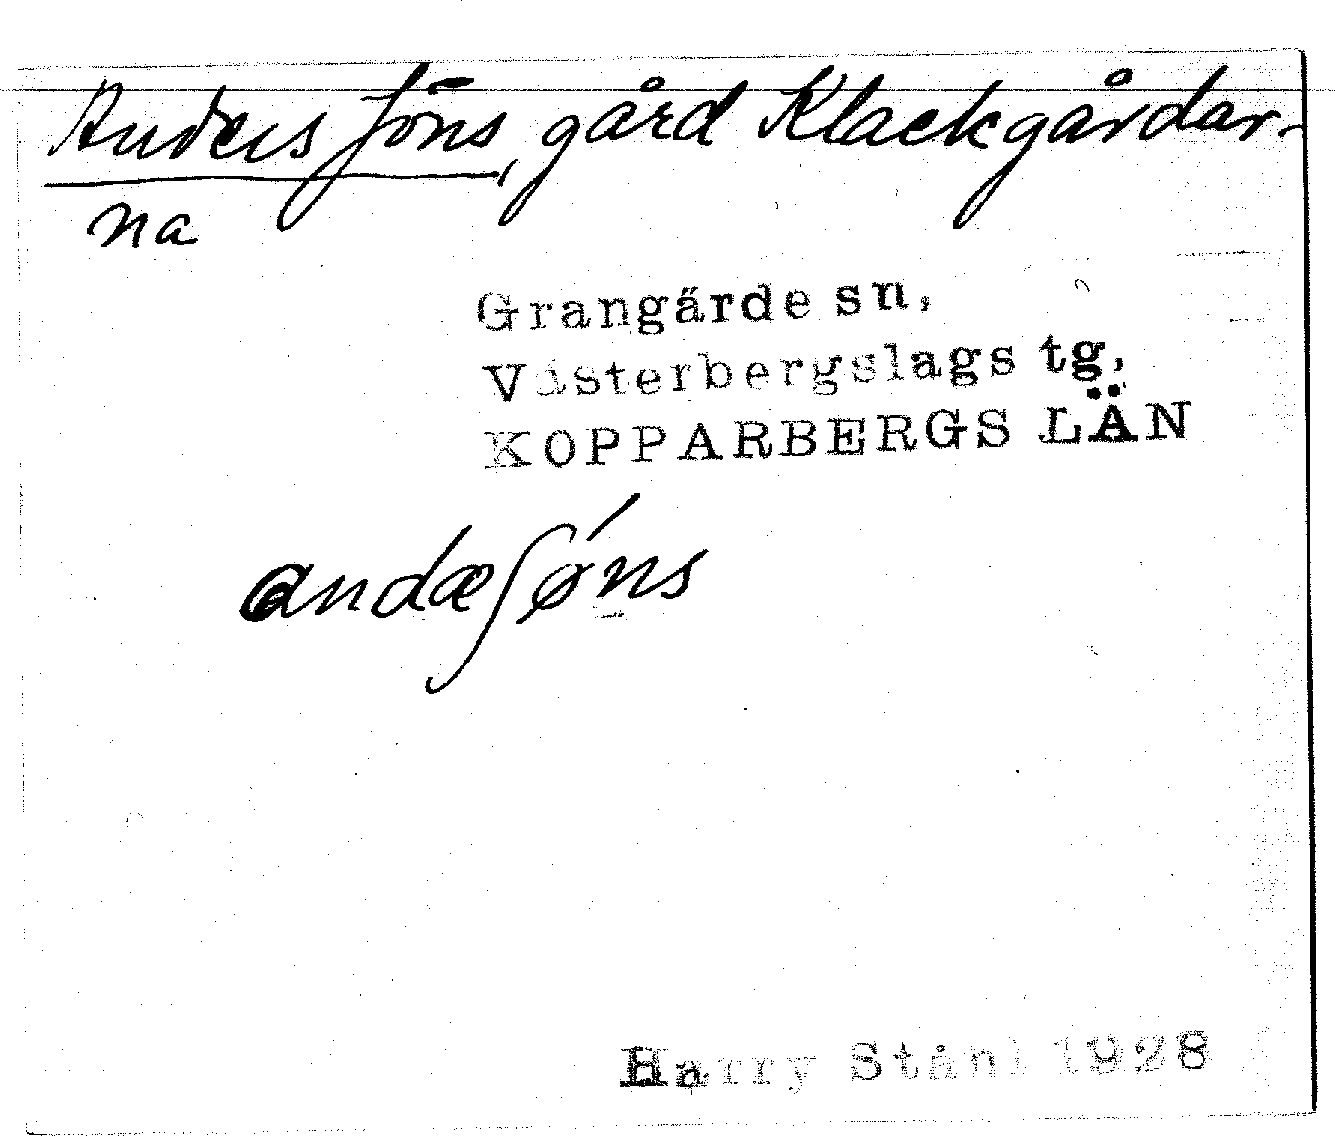 Anders Jöns, gård Klackgårdar-
na
Grangärde sn,
Västerbergslags tg,
KOPPARBERGS LÄN
andæʃǿns
Harry Ståhl 1928